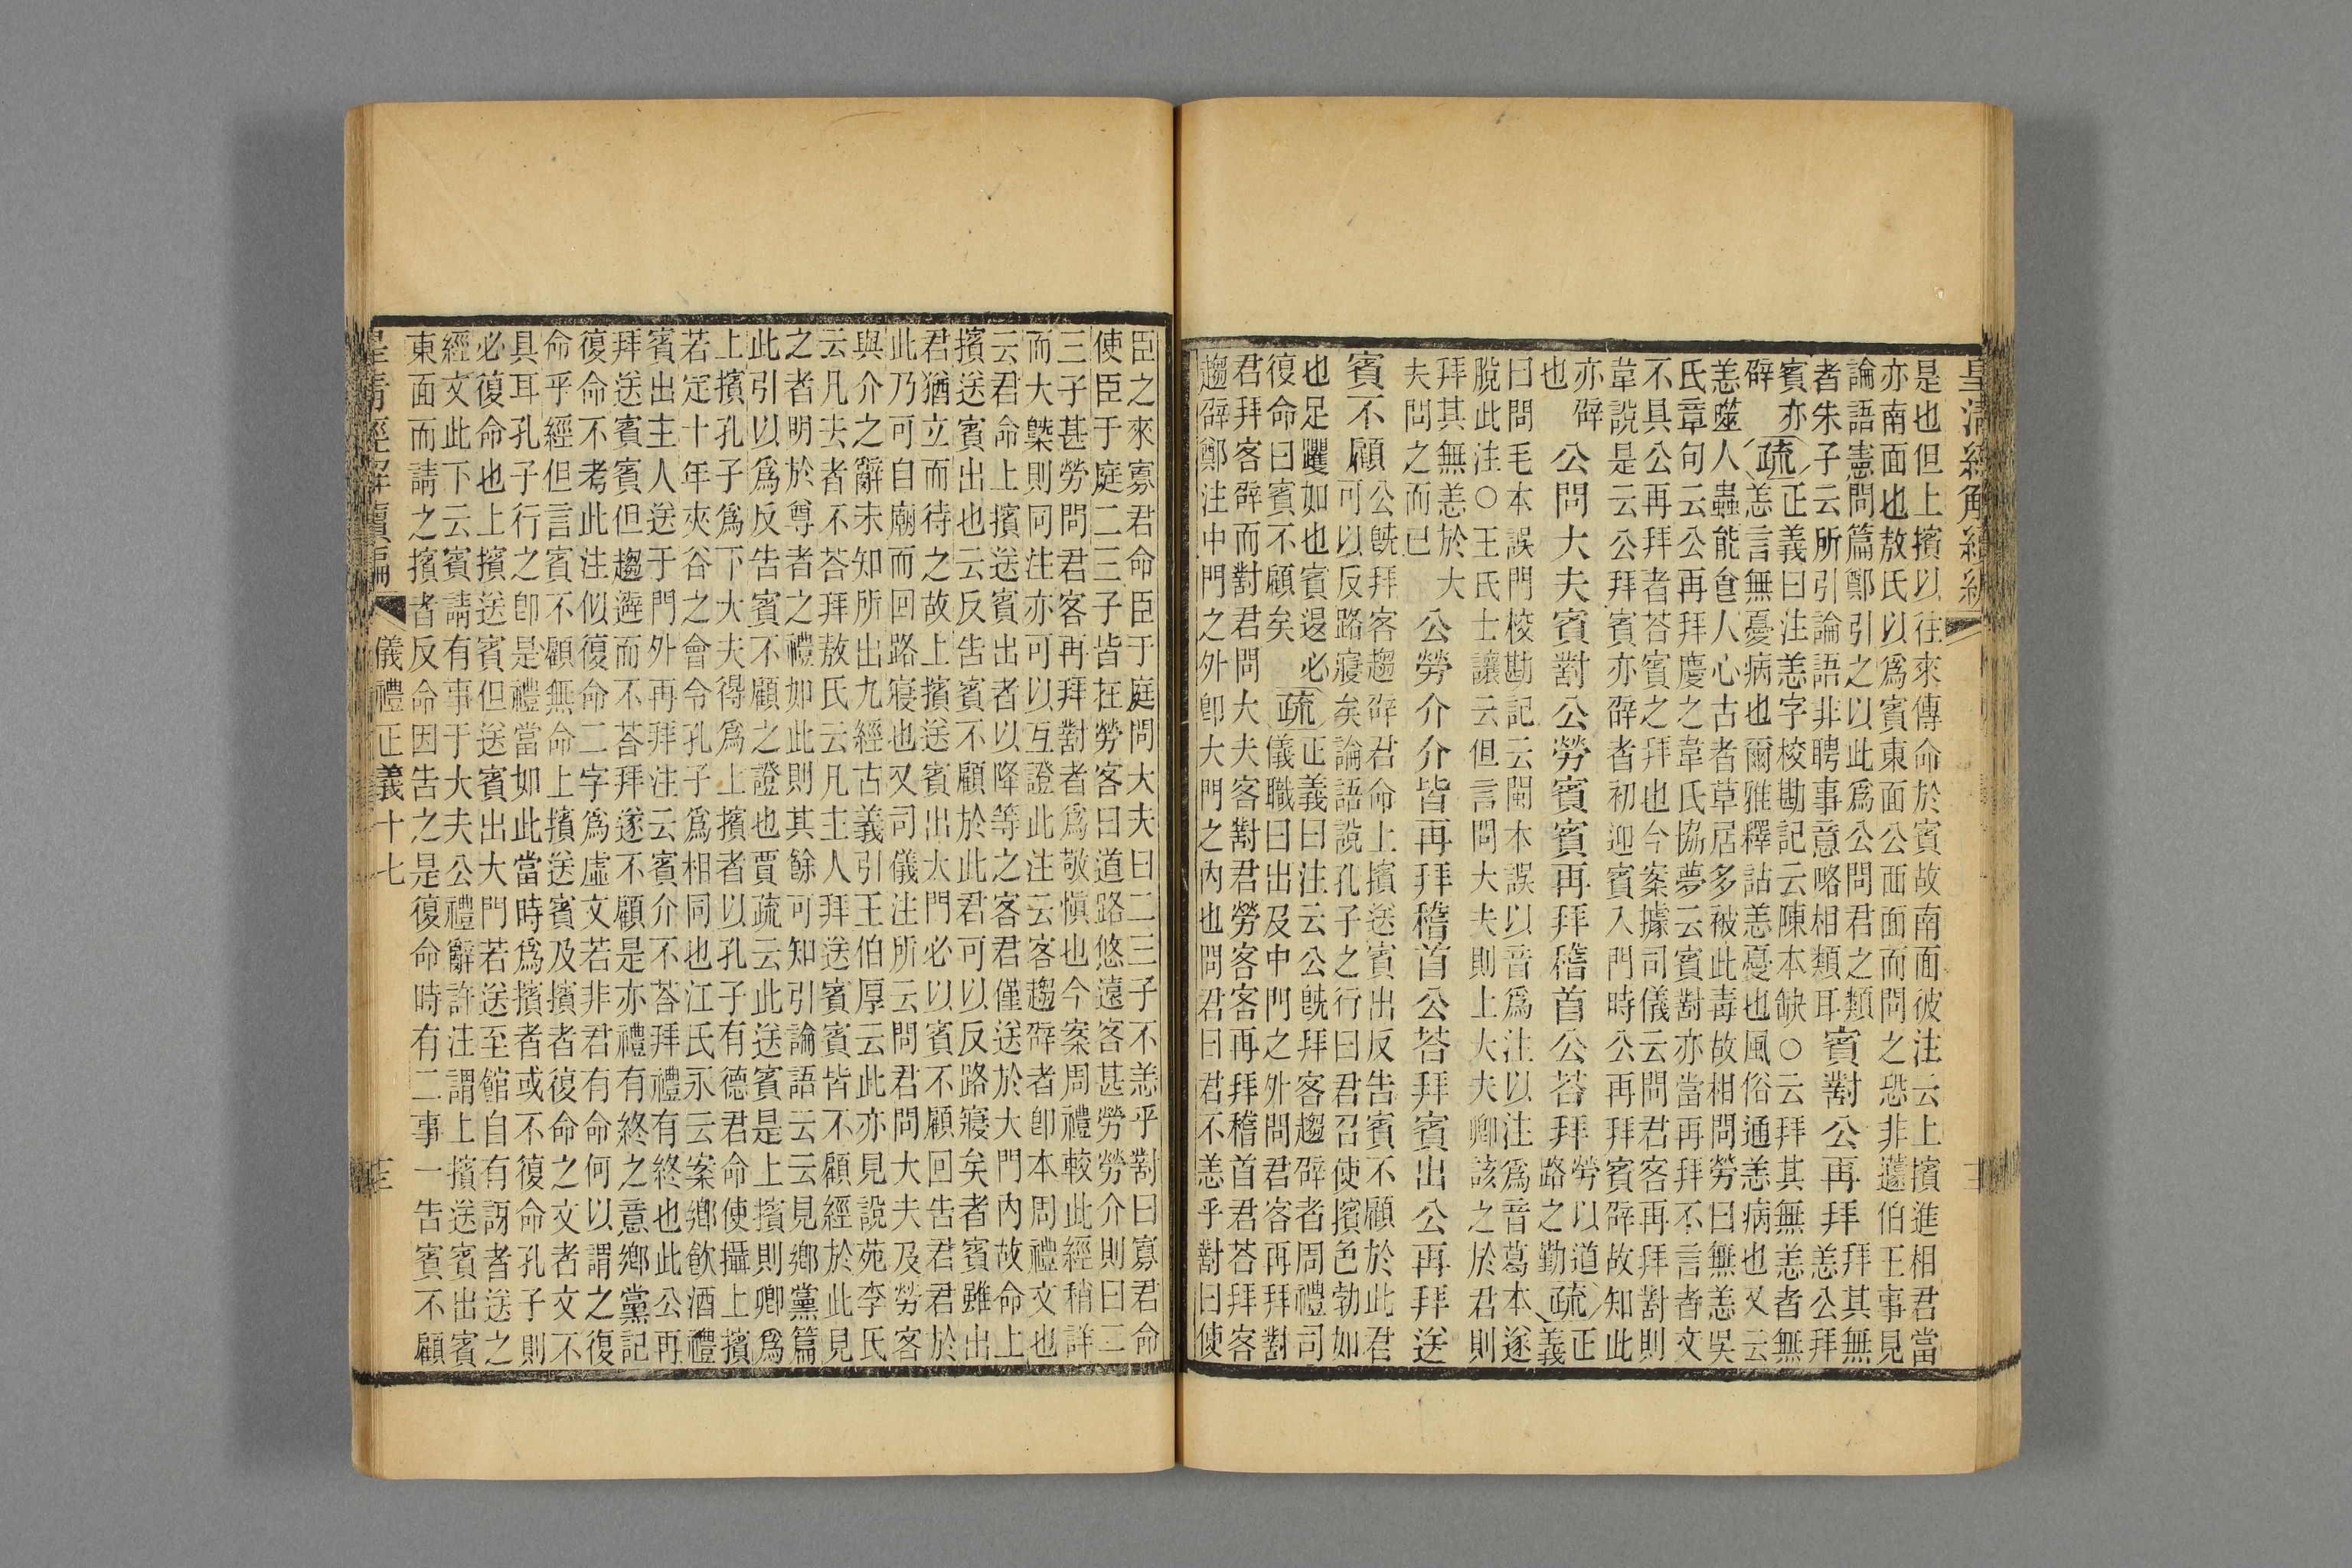 是也但上擯以往來傳命於賓故南面彼注云上擯進相君當
亦南面也敖氏以爲賓東面公西面而問之恐非蘧伯王事見
論語憲問篇鄭引之以此爲公問君之類
者朱子云所引論語非聘事意略相類耳
賓對公再拜
拜其無
恙公拜
賓亦
辟
疏
正義曰注恙字校勘記云陳本缺○云拜其無恙者無
恙言無憂病也爾雅釋詁恙憂也風俗通恙病也又云
恙噬人蟲能食人心古者草居多被此毒故相問勞曰無恙吳
氏章句云公再拜慶之韋氏協夢云賓對亦當再拜不言者文
不具公再拜者荅賓之拜也今案據司儀云問君客再拜對則
韋說是云公拜賓亦辟者初迎賓入門時公再拜賓辟故知此
亦辟
也
公問大夫賓對公勞賓賓再拜稽首公荅拜
勞以道
路之勤
疏
正
義
曰問毛本誤門校勘記云閩本誤以音爲注以注爲音葛本遂
脫此注○王氏士讓云但言問大夫則上大夫卿該之於君則
拜其無恙於大
夫問之而已
公勞介介皆再拜稽首公荅拜賓出公再拜送
賓不顧
公既拜客趨辟君命上擯送賓出反告賓不顧於此君
可以反路寢矣論語說孔子之行曰君召使擯色勃如
也足躩如也賓退必
復命曰賓不顧矣
疏
正義曰注云公既拜客趨辟者周禮司
儀職曰出及中門之外問君客再拜對
君拜客辟而對君問大夫客對君勞客客再拜稽首君荅拜客
趨辟鄭注中門之外卽大門之內也問君曰君不恙乎對曰使
臣之來寡君命臣于庭問大夫曰二三子不恙乎對曰寡君命
使臣于庭二三子皆在勞客曰道路悠遠客甚勞勞介則曰二
三子甚勞問君客再拜對者爲敬愼也今案周禮較此經稍詳
而大槩則同注亦可以互證此注云客趨辟者卽本周禮文也
云君命上擯送賓出者以降等之客君僅送於大門內故命上
擯送賓出也云反告賓不顧於此君可以反路寢矣者賓雖出
君猶立而待之故上擯送賓出大門必以賓不顧回告君君於
此乃可自廟而回路寢也又司儀注所云問君問大夫及勞客
與介之辭未知所出九經古義引王伯厚云此亦見說苑李氏
云凡去者不荅拜敖氏云凡主人拜送賓賓皆不顧經於此見
之者明於尊者之禮如此則其餘可知引論語云云見鄉黨篇
此引以爲反告賓不顧之證也賈疏云此送賓是上擯則卿爲
上擯孔子爲下大夫得爲上擯者以孔子有德君命使攝上擯
若定十年夾谷之會令孔子爲相同也江氏永云案鄉飮酒禮
賓出主人送于門外再拜注云賓介不荅拜禮有終也此公再
拜送賓賓但趨避而不荅拜遂不顧是亦禮有終之意鄉黨記
復命不考此注似復命二字爲虛文若非君有命何以謂之復
命乎經但言賓不顧無命上擯送賓及擯者復命之文者文不
具耳孔子行之卽是禮當如此當時爲擯者或不復命孔子則
必復命也上擯送賓但送賓出大門若送至館自有訝者送之
經文此下云賓請有事于大夫公禮辭許注謂上擯送賓出賓
東面而請之擯者反命因告之是復命時有二事一告賓不顧
皇清經解續編
儀禮正義十七